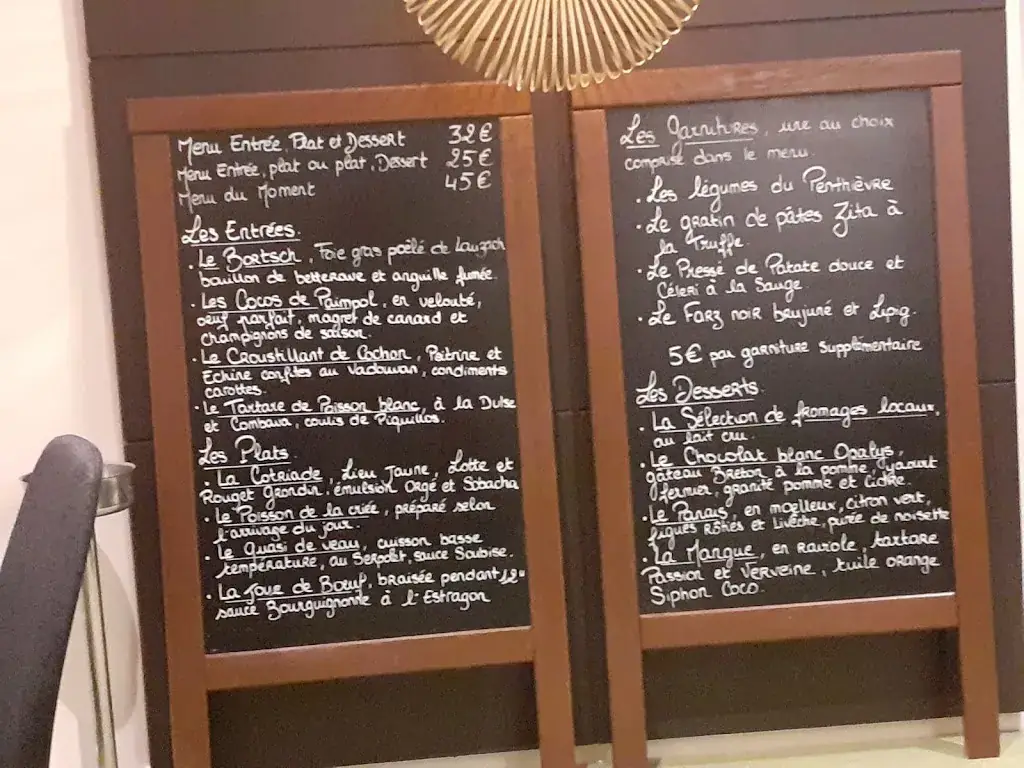 Menu Entrée, Plat et Dessert 32€
Menu Entrée, plat ou plat, Dessert 25€
Menu du Moment 45€
Les Entrées.
. Le Bortsch, Foie gras poêlé de Lauzach
bouillon de betterave et anguille fumée.
. Les Cocos de Paimpol, en velouté,
oeuf parfait, magret de canard et
champignons de saison.
. Le Croustillant de Cochon, Poitrine et
Echine confites au Vadouvan, condiments
carottes.
. Le Tartare de Poisson blanc, à la Dulse
et Combava, coulis de Piquillos.
Les Plats.
. La Cotriade, Lieu Jaune, Lotte et
Rouget Grondin, émulsion Orge et Sobacha
. Le Poisson de la criée, préparé selon
l'arrivage du jour.
. Le Quasi de veau, cuisson basse
température, au Serpolet, sauce Soubise.
. La Joue de Boeuf, braisée pendant 12H
sauce Bourguignonne à l'Estragon
Les Garnitures, une au choix
comprise dans le menu.
. Les légumes du Penthièvre
. Le gratin de pâtes Zita à
la Truffe.
. Le Pressé de Patate douce et
Céleri à la Sauge
. Le Farz noir brujuné et Lipig.
5€ par garniture supplémentaire
Les Desserts
. La Sélection de fromages locaux,
au lait cru.
. Le Chocolat blanc Opalys,
gâteau Breton à la pomme, yaourt
fermier, granité pomme et cidre.
. Le Panais, en moelleux, citron vert,
figues rôties et Livèche, purée de noisette
. La Mangue, en raviole, tartare
Passion et Verveine, tuile orange
Siphon Coco.